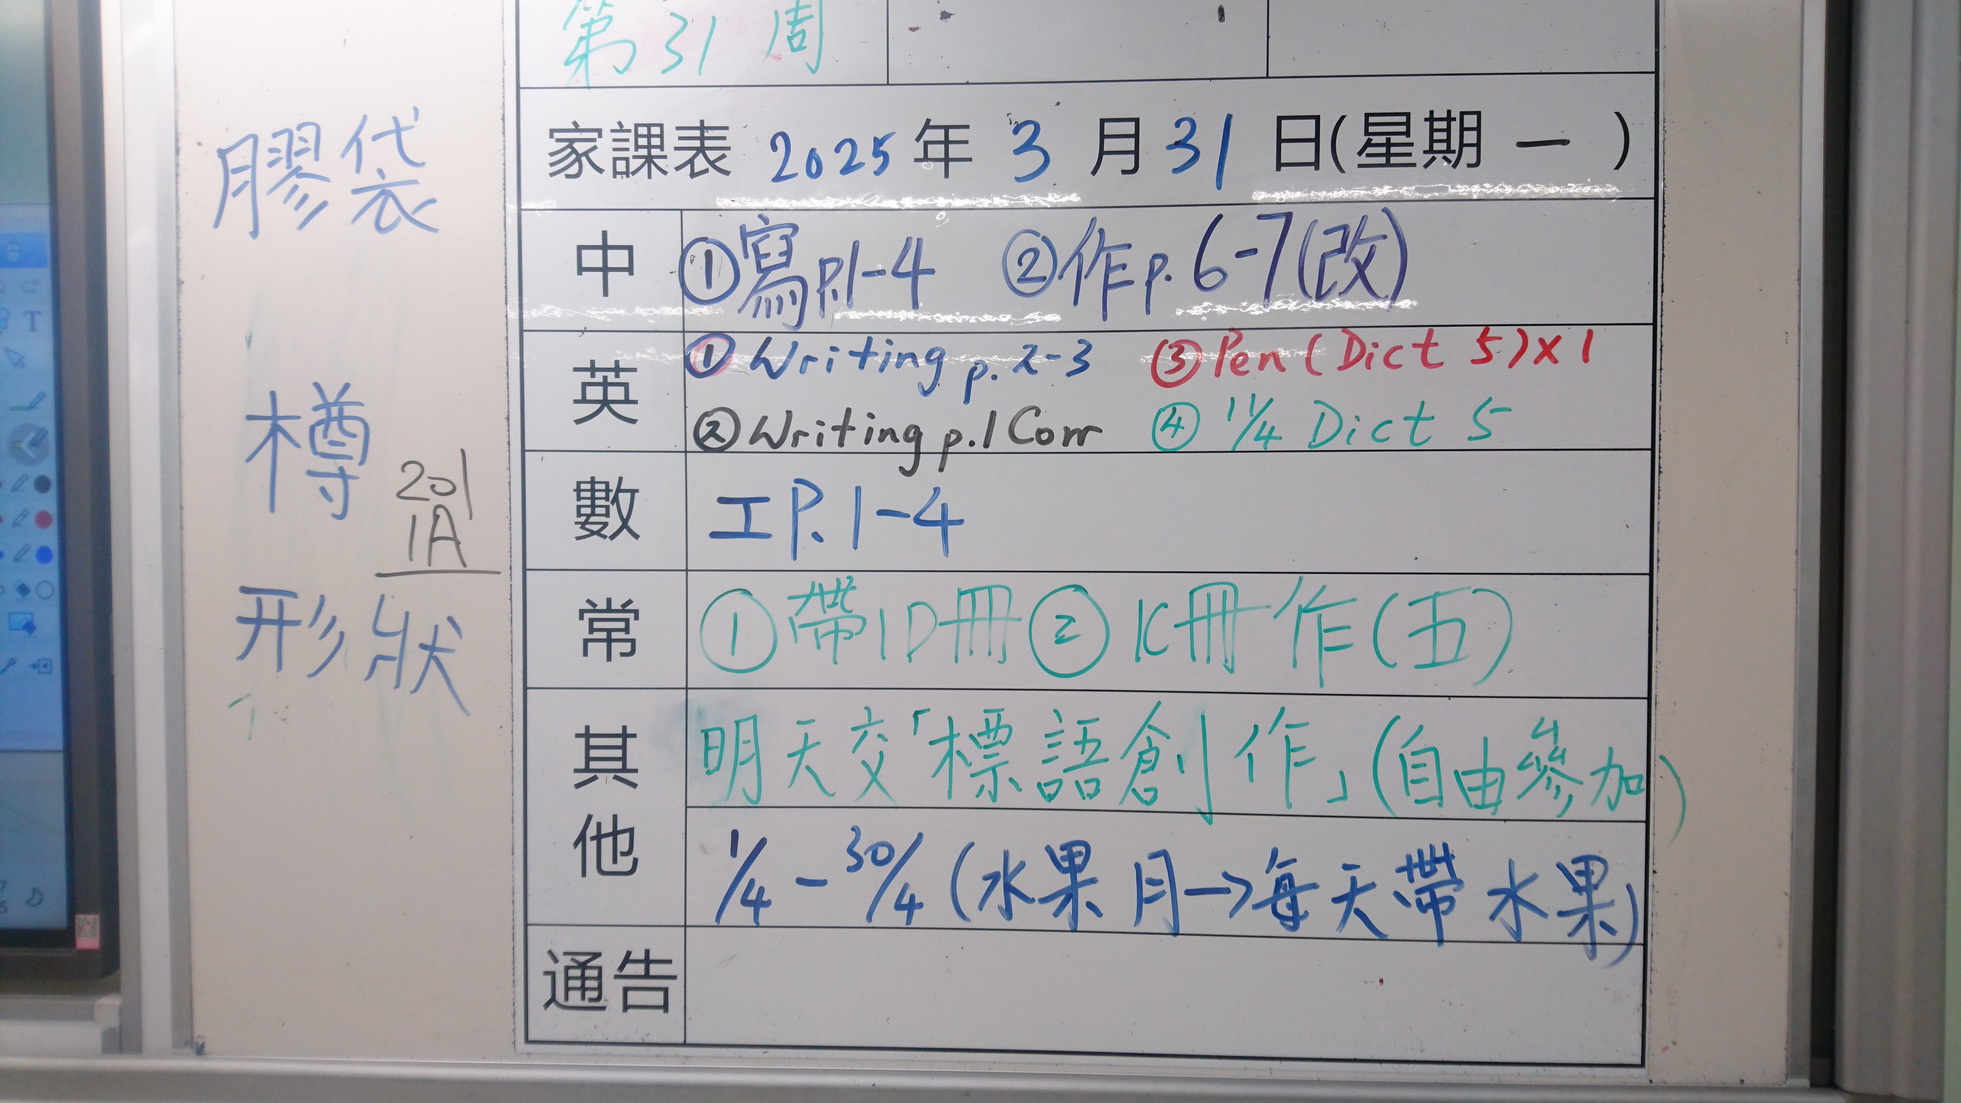 第31周
家課表 2025年3月31日(星期一)
中 ①寫p.1-4 ②作p.6-7(改)
英 ①Writing p.2-3 ③Pen(Dict 5)x1
②Writing p.1 Corr ④11/4 Dict 5
數 工P.1-4
常 ①帶1D冊②K冊作(五)
其他 明天交「標語創作」(自由參加)
1/4-30/4(水果月→每天帶水果)
通告
膠袋
樽
201
1A
形狀
T